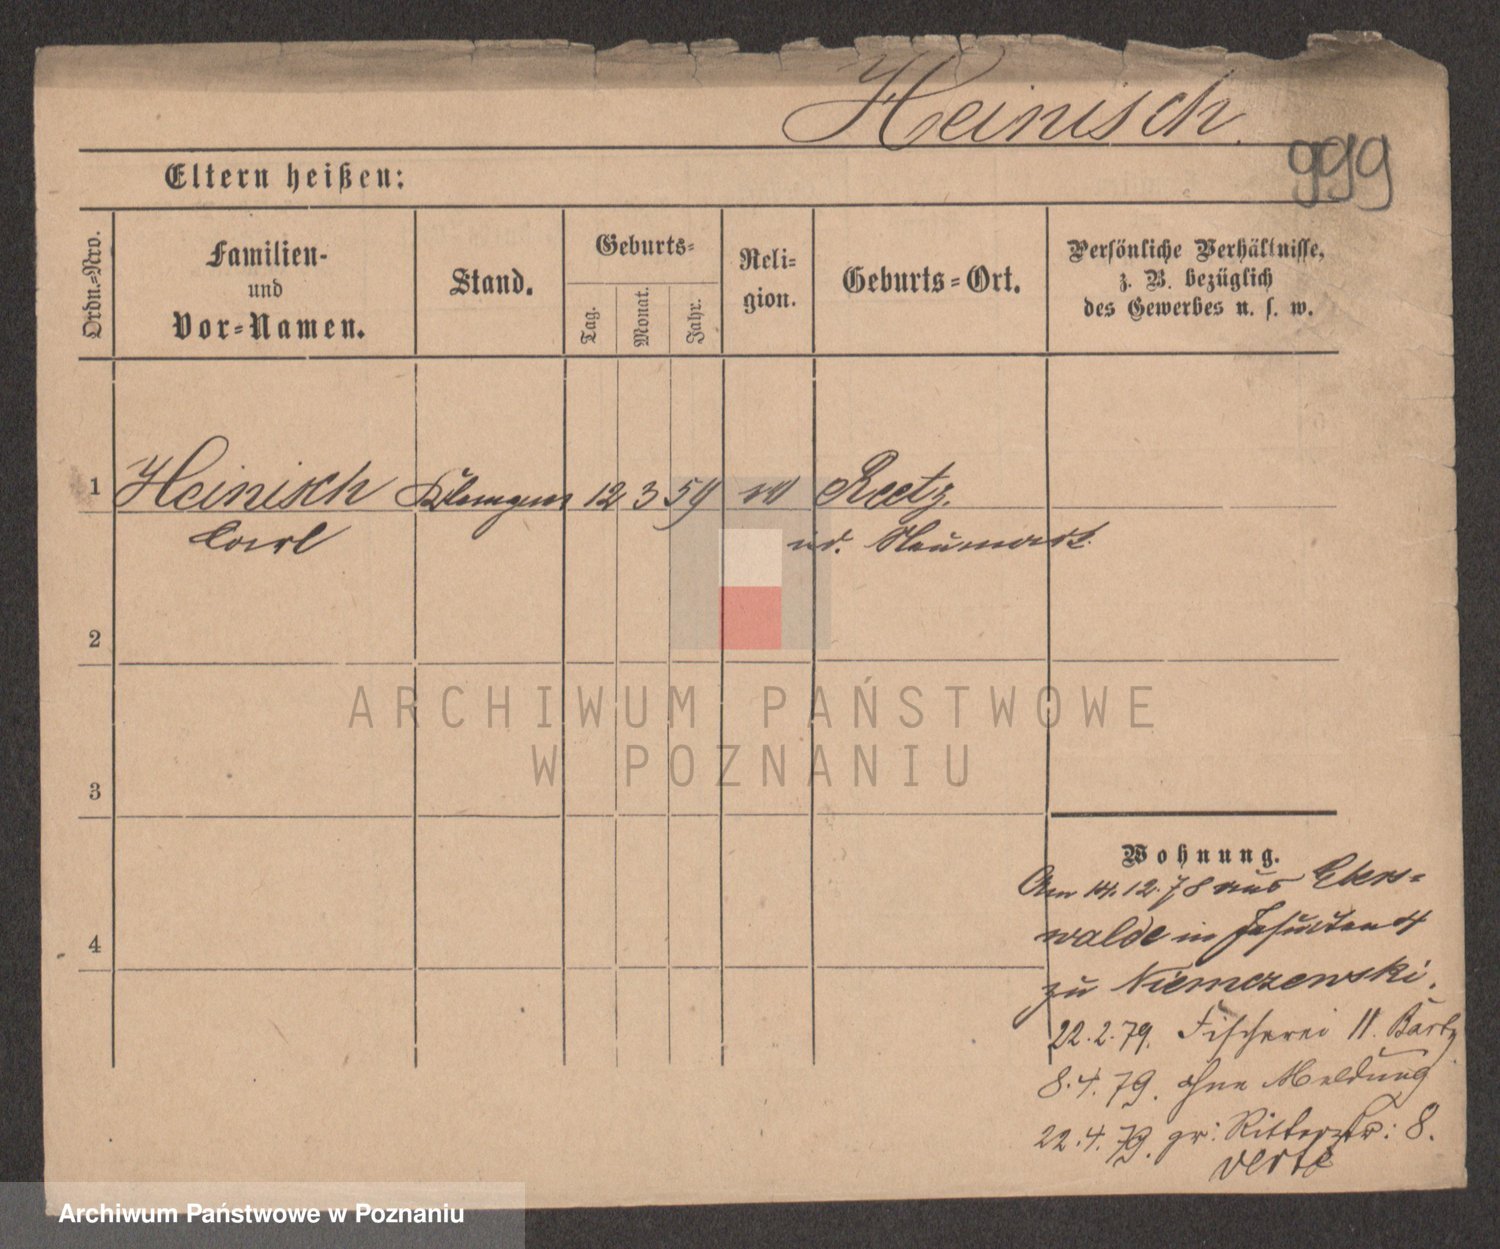 Heinisch.
999
Eltern heißen:
Ordn.-Nro.
Familien-
und
Vor-Namen.
Stand.
Geburts-
Tag.
Monat.
Jahr.
Reli-
gion.
Geburts-Ort.
Persönliche Verhältnisse,
z. B. bezüglich
des Gewerbes u. s. w.
1 Heinisch 12 3 59 Reetz.
Carl Neumark.
2
3
4
ARCHIWUM PAŃSTWOWE
W POZNANIU
Wohnung.
Am 14.12.78 aus Ebers-
walde in Jesuiten 4
zu Niemczewski.
22.2.79. Fischerei 11. Bartz
8.4.79. ohne Meldung
22.4.79. gr: Ritterstr: 8.
verte
Archiwum Państwowe w Poznaniu